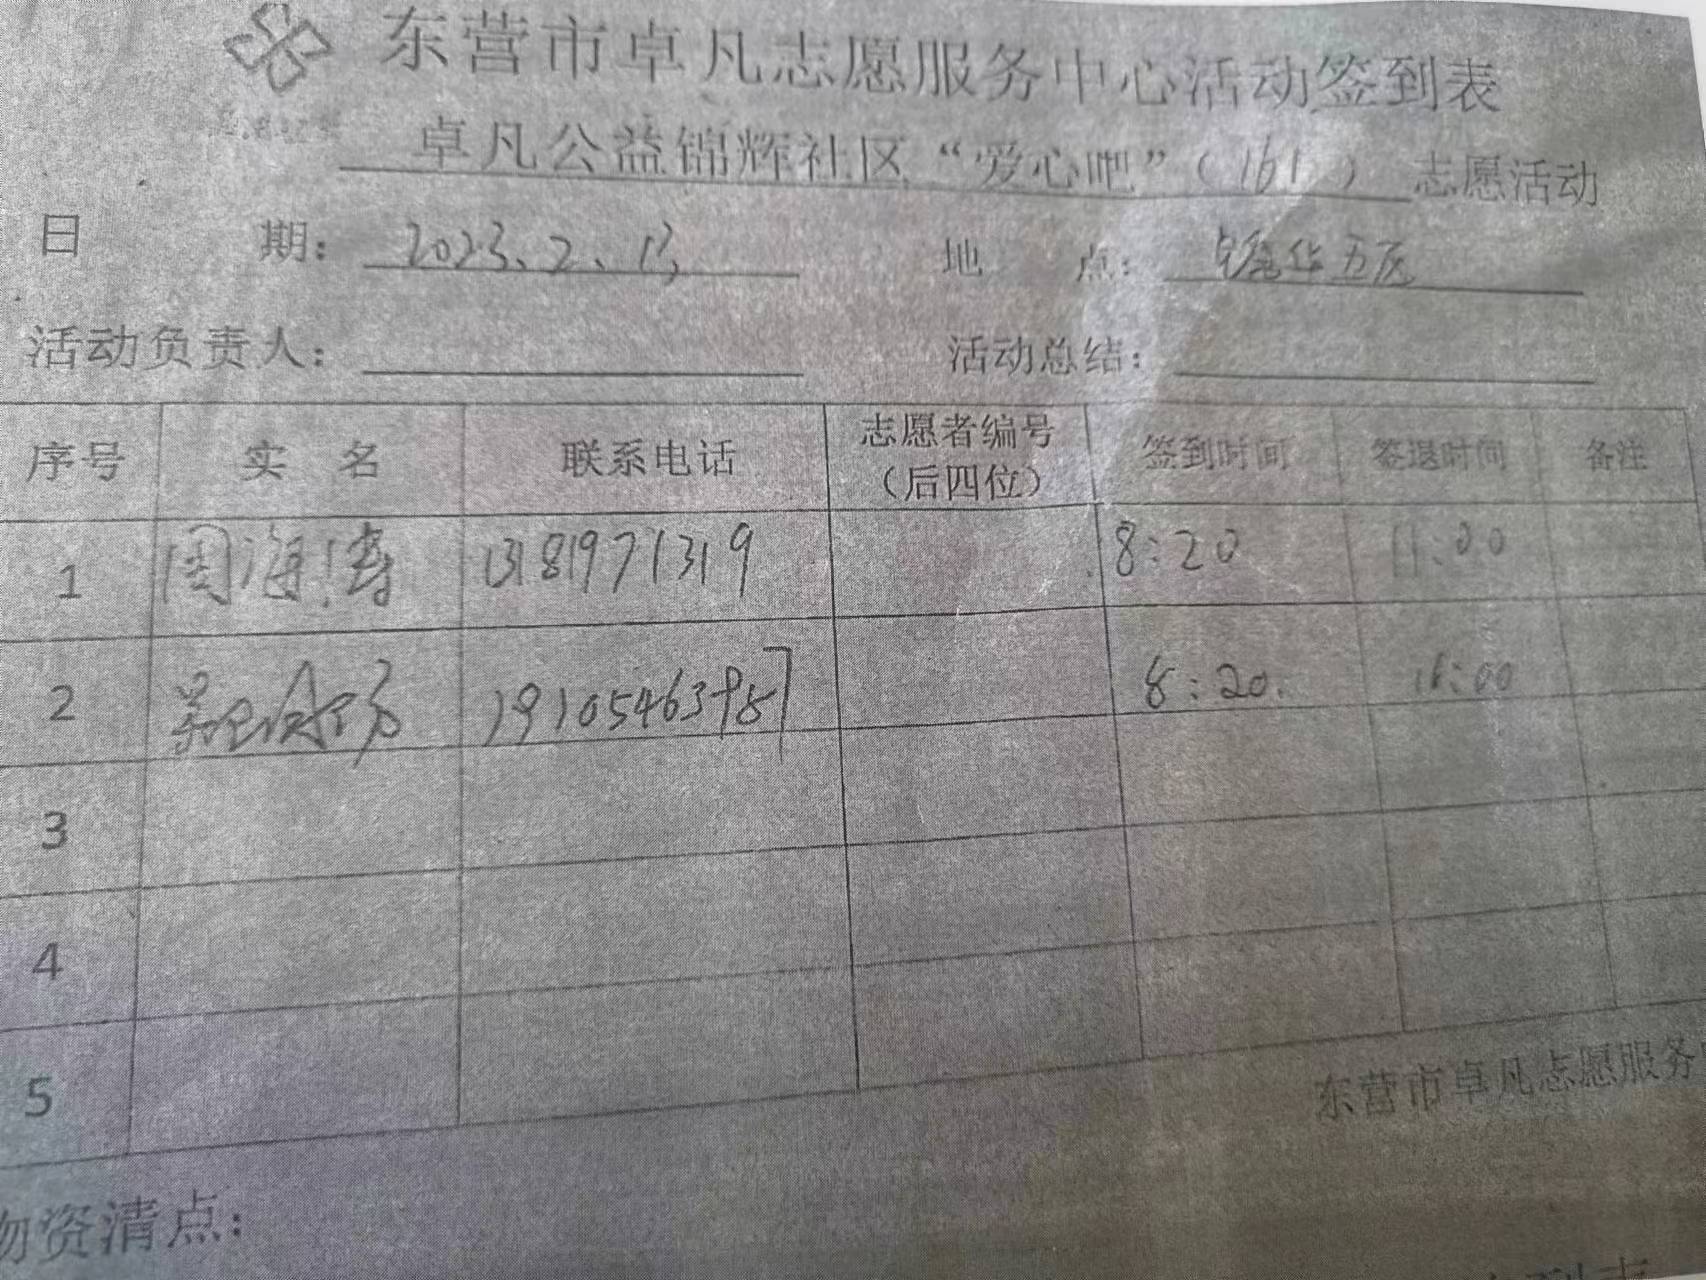 东营市卓凡志愿服务中心活动签到表
卓凡公益锦辉社区“爱心吧”（161）志愿活动
日 期： 2023.2.13 地 点：
活动负责人： 活动总结：
序号 实 名 联系电话 志愿者编号（后四位） 签到时间 签退时间 备注
1 周海涛 13181971319 8:20 11:00
2 8:20. 11:00
3
4
5
东营市卓凡志愿服务
物资清点：